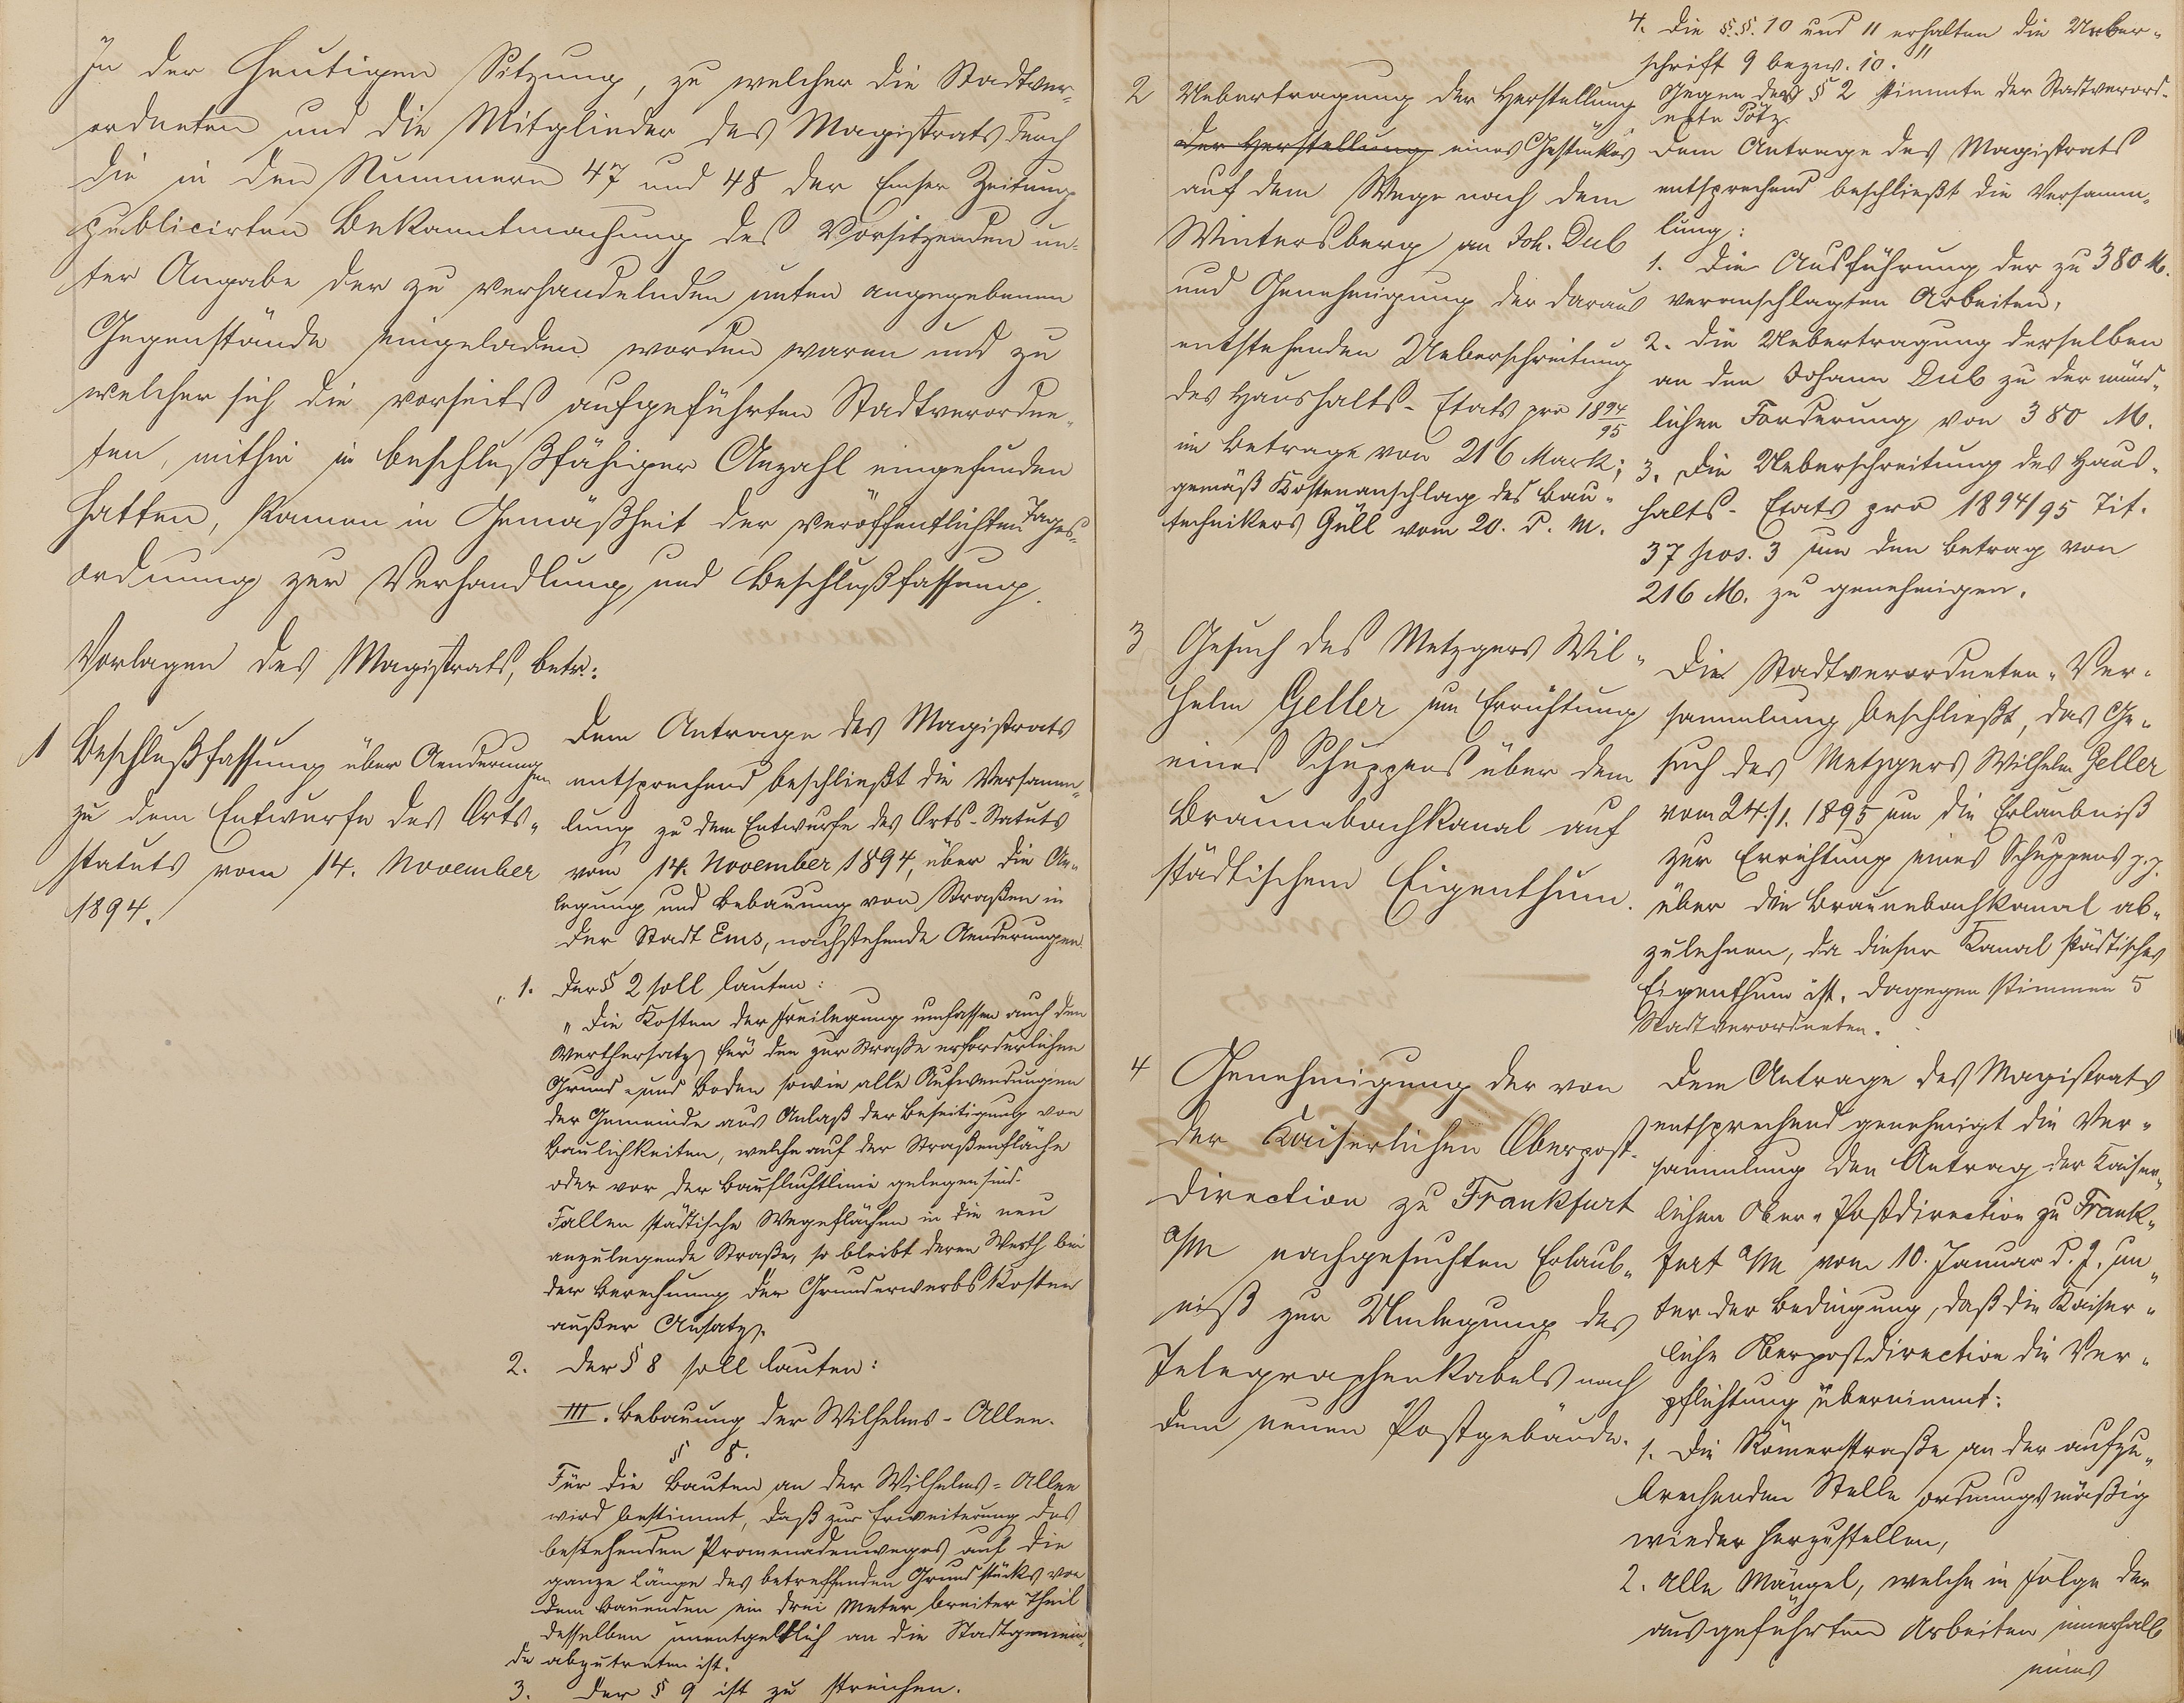 In der heutigen Sitzung, zu welcher die Stadtver-
ordneten und die Mitglieder des Magistrats durch
die in den Nummern 47 und 48 der Emser Zeitung
publicirten Bekanntmachung des Vorsitzenden un-
ter Angabe der zu verhandelnden unten angegebenen
Gegenstände eingeladen worden waren und zu
welcher sich die vorseits aufgeführten Stadtverordne-
ten, mithin in beschlußfähiger Anzahl eingefunden
hatten, kamen in Gemäßheit der veröffentlichten Tages-
ordnung zur Verhandlung und Beschlußfassung.
Vorlagen des Magistrats, betr.:
1 Beschlußfassung über Aenderungen
zu dem Entwurfe des Orts-
statuts vom 14. November
1894.
Dem Antrage des Magistrats
entsprechend beschließt die Versamm-
lung zu dem Entwurfe des Orts-Statuts
vom 14. November 1894, über die An-
legung und Bebauung von Straßen in
der Stadt Ems, nachstehende Aenderungen.
„1. Der § 2 soll lauten:
„Die Kosten der Freilegung umfassen auch den
Werthersatz für den zur Straße erforderlichen
Grund und Boden sowie alle Aufwendungen
der Gemeinde aus Anlaß der Beseitigung von
Baulichkeiten, welche auf der Straßenfläche
oder vor der Baufluchtlinie gelegen sind.
Fallen städtische Wegeflächen in die neu
anzulegende Straße, so bleibt deren Werth bei
der Berechnung der Grunderwerbskosten
außer Ansatz.
2. Der § 8 soll lauten:
III. Bebauung der Wilhelms-Allee.
§ 8.
Für die Bauten an der Wilhelms-Allee
wird bestimmt, daß zur Erweiterung des
bestehenden Promenadenweges auf die
ganze Länge des betreffenden Grundstücks von
dem Bauenden ein drei Meter breiter Theil
desselben unentgeltlich an die Stadtgemein-
de abzutreten ist.
3. Der § 9 ist zu streichen.
4. Die §.§. 10 und 11 erhalten die Ueber-
schrift 9 bezw. 10."
Gegen den § 2 stimmte der Stadtverord-
nete Pötz.
2 Uebertragung der Herstellung
der Herstellung eines Gestückes
auf dem Wege nach dem
Wintersberg an Joh. Dub
und Genehmigung der daraus
entstehenden Ueberschreitung
des Haushalts-Etats pro 1894/95
im Betrage von 216 Mark;
gemäß Kostenanschlag des Bau-
technikers Güll vom 20. d. M.
Dem Antrage des Magistrats
entsprechend beschließt die Versamm-
lung:
1. Die Ausführung der zu 380 M.
veranschlagten Arbeiten,
2. Die Uebertragung derselben
an den Johann Dub zu der münd-
lichen Forderung von 380 M.
3. Die Ueberschreitung des Haus-
halts-Etats pro 1894/95 Tit.
37 pos. 3 um den Betrag von
216 M. zu genehmigen.
3 Gesuch des Metzgers Wil-
helm Geller um Errichtung
eines Schuppens über dem
Braunebachkanal auf
städtischem Eigenthum.
Die Stadtverordneten-Ver-
sammlung beschließt, das Ge-
such des Metzgers Wilhelm Geller
vom 24./1. 1895 um die Erlaubniß
zur Errichtung eines Schuppens p.p.
über die Braunebachkanal ab-
zulehnen, da dieser Kanal städtisches
Eigenthum ist. Dagegen stimmen 5
Stadtverordneten.
4 Genehmigung der von
der Kaiserlichen Oberpost-
direction zu Frankfurt
a/M nachgesuchten Erlaub-
niß zur Umlegung des
Telegraphenkabels nach
dem neuen Postgebäude.
Dem Antrage des Magistrats
entsprechend genehmigt die Ver-
sammlung den Antrag der Kaiser-
lichen Ober-Postdirection zu Frank-
furt a/M vom 10. Januar d. J. un-
ter der Bedingung, daß die Kaiser-
liche Oberpostdirection die Ver-
pflichtung übernimmt:
1. Die Römerstraße an der aufzu-
brechenden Stelle ordnungsmäßig
wieder herzustellen,
2. Alle Mängel, welche in Folge der
ausgeführten Arbeiten innerhalb
eines